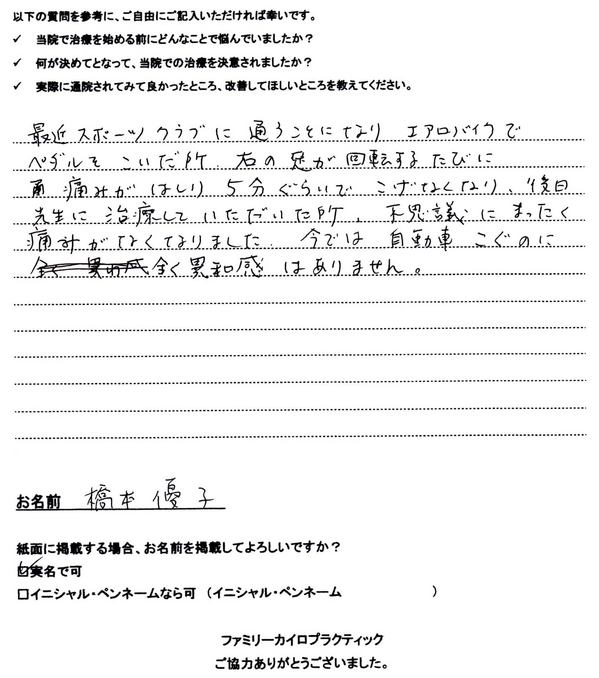 以下の質問を参考に、ご自由にご記入いただければ幸いです。
✓ 当院で治療を始める前にどんなことで悩んでいましたか？
✓ 何が決めてとなって、当院での治療を決意されましたか？
✓ 実際に通院されてみて良かったところ、改善してほしいところを教えてください。
最近スポーツクラブに通うことになり エアロバイクで
ペダルをこいだ所、右の足が回転するたびに
痛みがはしり 5分ぐらいで こげなくなり、後日
先生に治療していただいた所、不思議にまったく
痛みがなくなりました。今では 自動車こぐのに
全く異和感はありません。
お名前 橋本優子
紙面に掲載する場合、お名前を掲載してよろしいですか？
☑実名で可
□イニシャル・ペンネームなら可 （イニシャル・ペンネーム ）
ファミリーカイロプラクティック
ご協力ありがとうございました。